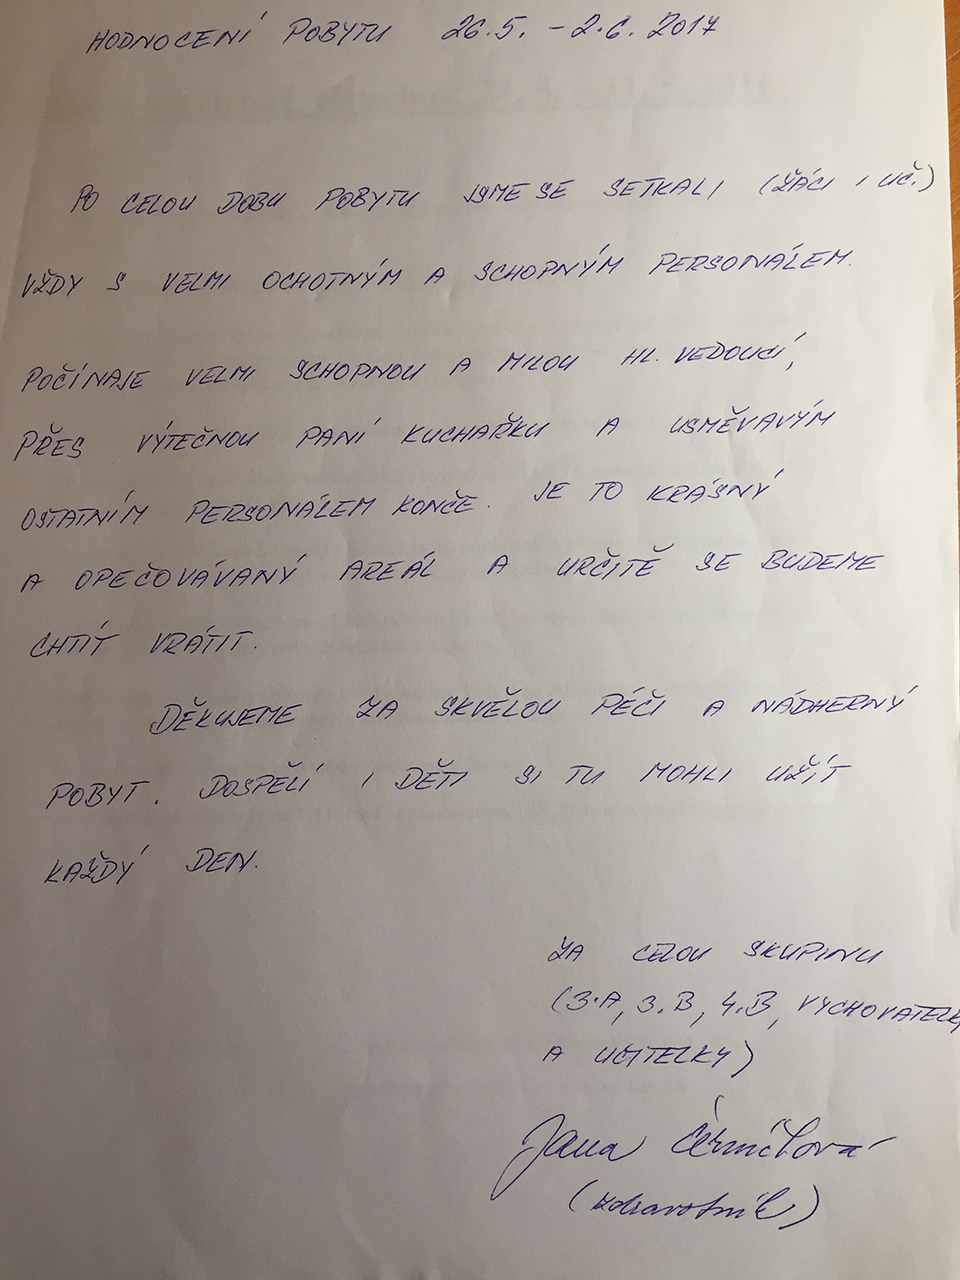 HODNOCENÍ POBYTU 26.5. - 2.6. 2017
PO CELOU DOBU POBYTU JSME SE SETKALI (ŽÁCI I UČ.)
VŽDY S VELMI OCHOTNÝM A SCHOPNÝM PERSONÁLEM.
POČÍNAJE VELMI SCHOPNOU A MILOU HL. VEDOUCÍ,
PŘES VÝTEČNOU PANÍ KUCHAŘKU A USMĚVAVÝM
OSTATNÍM PERSONÁLEM KONČE. JE TO KRÁSNÝ
A OPEČOVÁVANÝ AREÁL A URČITĚ SE BUDEME
CHTÍT VRÁTIT.
DĚKUJEME ZA SKVĚLOU PÉČI A NÁDHERNÝ
POBYT. DOSPĚLÍ I DĚTI SI TU MOHLI UŽÍT
KAŽDÝ DEN.
ZA CELOU SKUPINU
(3.A, 3.B, 4.B, VYCHOVATELK
A UČITELKY)
Jana
(zdravotník)